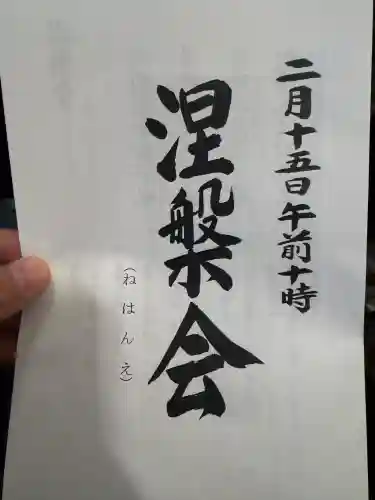 二月十五日午前十時
涅槃会
(ねはんえ)